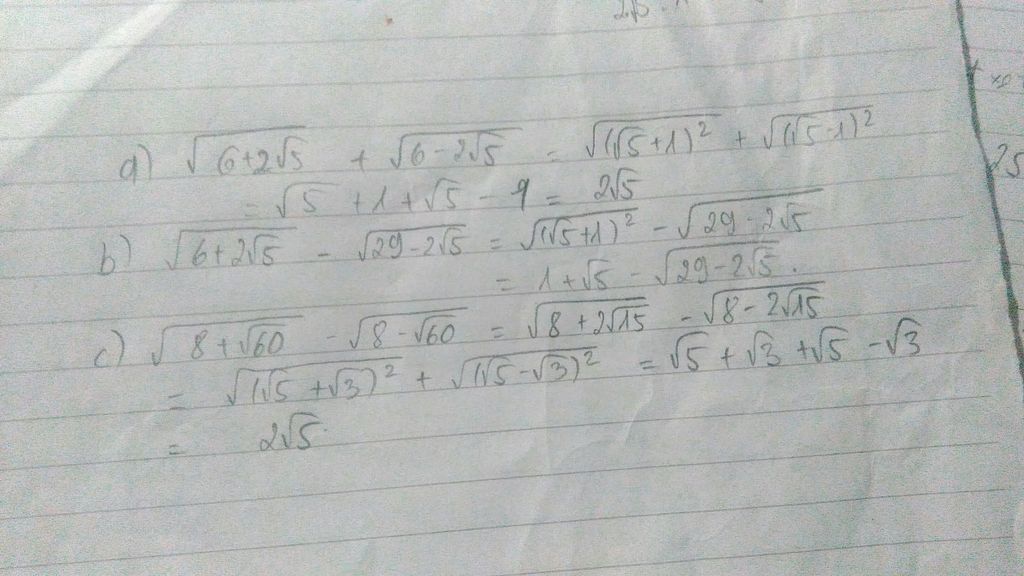 a) √(6+2√5) + √(6-2√5) = √((√5+1)²) + √((√5-1)²)
= √5 + 1 + √5 - 1 = 2√5
b) √(6+2√5) - √(29-2√5) = √((√5+1)²) - √(29-2√5)
= 1+√5 - √(29-2√5).
c) √(8+√60) - √(8-√60) = √(8+2√15) - √(8-2√15)
= √((√5+√3)²) + √((√5-√3)²) = √5 + √3 + √5 - √3
= 2√5.